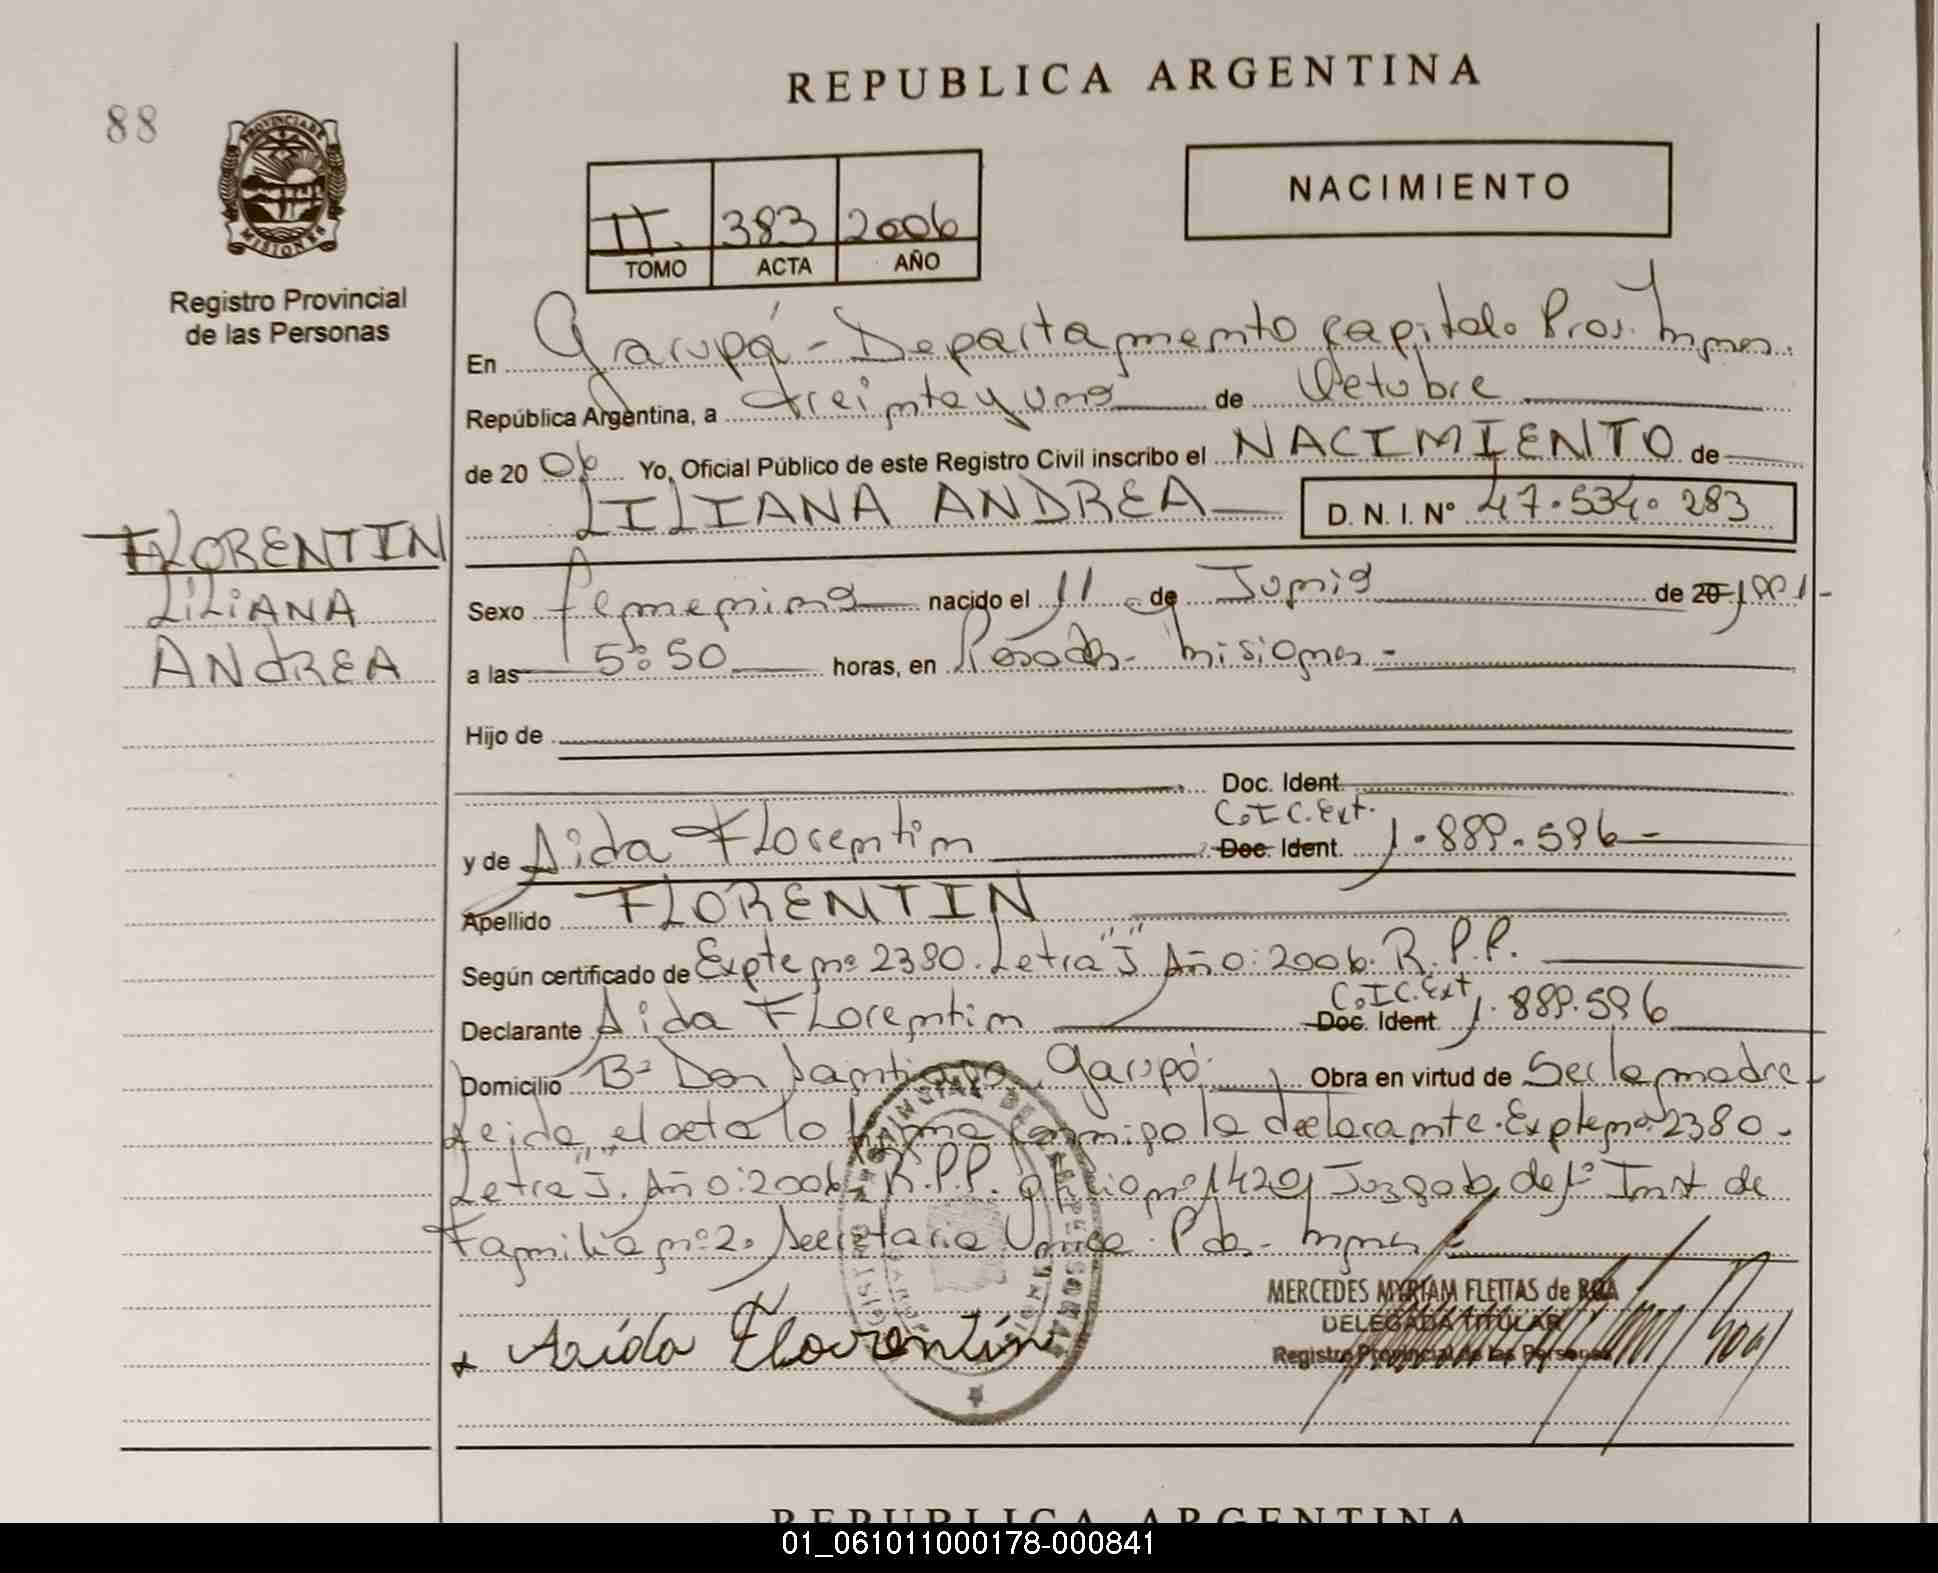 REPUBLICA ARGENTINA
88
PROVINCIA DE
MISIONES
Registro Provincial
de las Personas
NACIMIENTO
II. 383 2006
TOMO ACTA AÑO
En Garupá - Departamento Capital. Prov. Mnes.
República Argentina, a treinta y uno de Octubre
de 20 06 Yo, Oficial Público de este Registro Civil inscribo el NACIMIENTO de
LILIANA ANDREA D. N. I. Nº 47.534.283
FLORENTIN
LILIANA
ANDREA
Sexo femenino nacido el 11 de Junio de 20 1991-
a las 5:50 horas, en Posadas - Misiones -
Hijo de
Doc. Ident.
C.I.C.Ext.
y de Aida Florentin Doc. Ident. 1.889.596-
Apellido FLORENTIN
Según certificado de Expte nº 2380. Letra "J" Año: 2006. R.P.P.
C.I.C.Ext
Declarante Aida Florentin Doc. Ident 1.889.596
Domicilio Bº Don Santiago Garupá Obra en virtud de Ser la madre
Leida el acta lo firma conmigo la declarante. Expte nº 2380.
Letra "J". Año: 2006. R.P.P. Oficio nº 1420, Juzgado de 1º Inst de
Familia nº 2. Secretaria Unica. Pdas - Mnes
MERCEDES MYRIAM FLEITAS de ROA
DELEGADA TITULAR
Registro Provincial de las Personas
Aida Florentín
REPUBLICA ARGENTINA
01_061011000178-000841